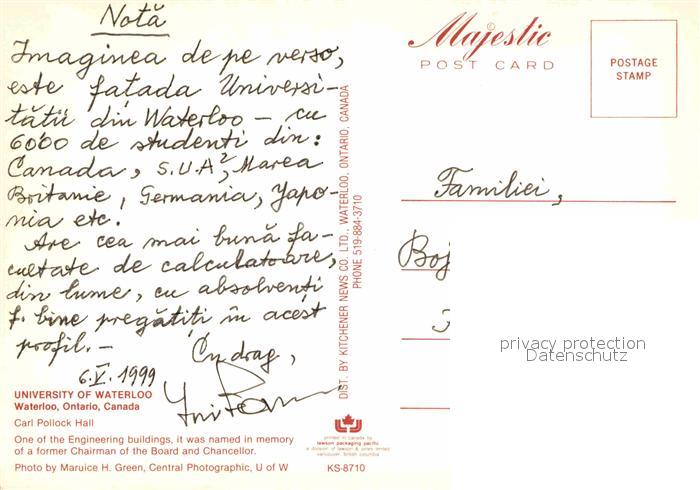 Notă
Imaginea de pe verso,
este fațada Universi-
tății din Waterloo – cu
6000 de studenți din:
Canada, S.U.A., Marea
Britanie, Germania, Yapo-
nia etc.
Are cea mai bună fa-
cultate de calculatoare,
din lume, cu absolvenți
f. bine pregătiți în acest
profil. –
Cu drag,
6.V.1999
UNIVERSITY OF WATERLOO
Waterloo, Ontario, Canada
Carl Pollock Hall
One of the Engineering buildings, it was named in memory
of a former Chairman of the Board and Chancellor.
Photo by Maruice H. Green, Central Photographic, U of W
KS-8710
DIST. BY KITCHENER NEWS CO. LTD., WATERLOO, ONTARIO, CANADA
PHONE 519-884-3710
printed in canada by
lawson packaging pacific
a division of lawson & jones limited
vancouver, british columbia
Majestic
POST CARD
POSTAGE
STAMP
Familiei,
Boj
privacy protection
Datenschutz